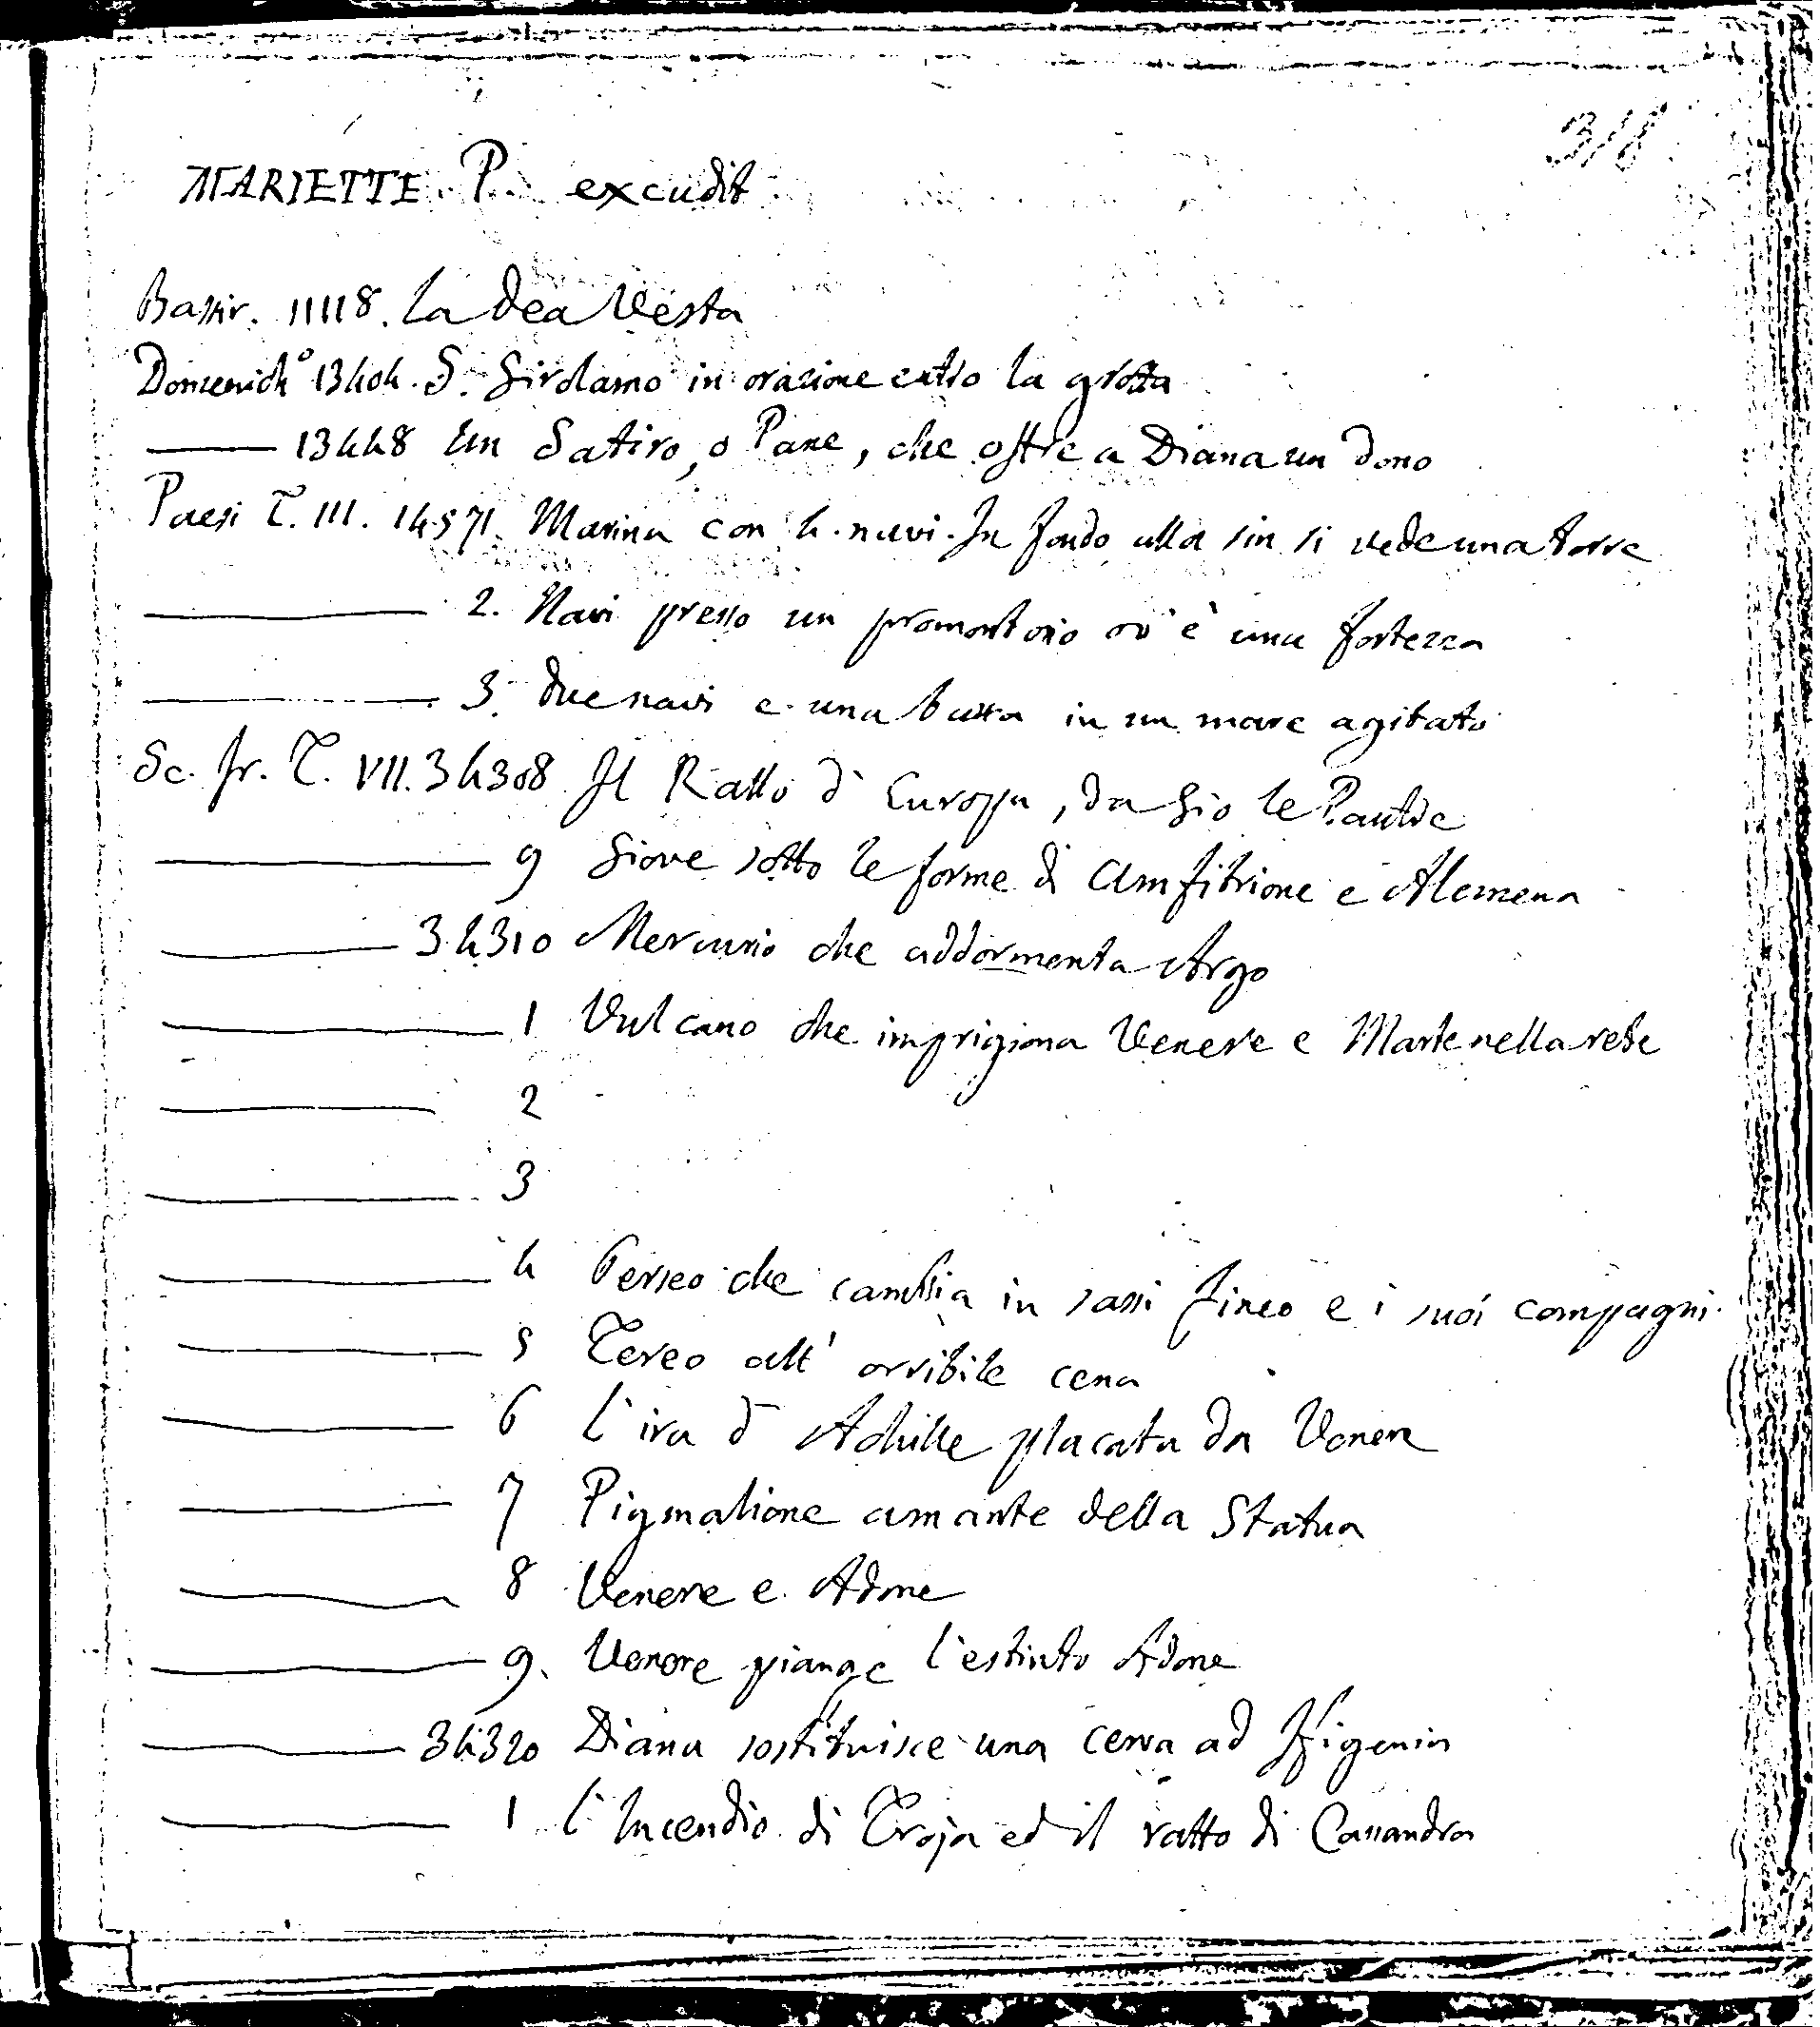 318
MARIETTE P. excudit
Bassir. 11118. La Dea Vesta
Domenich° 13404. S. Girolamo in orazione entro la grotta
——— 13448 Un Satiro, o Pane, che offre a Diana un dono
Paesi T. III. 14571. Marina con 4. navi. In fondo alla sin si vede una torre
——— 2. Navi presso un promontorio ov'è una fortezza
——— 3. Due navi e una barca in un mare agitato
Sc. fr. T. VII. 34308 Il Ratto d' Europa, da Gio le Pautre
——— 9 Giove sotto le forme di Amfitrione e Alcmena
——— 34310 Mercurio che addormenta Argo
——— 1 Vulcano che imprigiona Venere e Marte nella rete
——— 2
——— 3
——— 4 Perseo che cambia in sassi Fineo e i suoi compagni.
——— 5 Tereo all' orribile cena
——— 6 L'ira d' Achille placata da Venere
——— 7 Pigmalione amante della Statua
——— 8 Venere e Adone
——— 9. Venere piange l'estinto Adone
——— 34320 Diana sostituisce una cerva ad Ifigenia
——— 1 L'Incendio di Troja ed il ratto di Cassandra